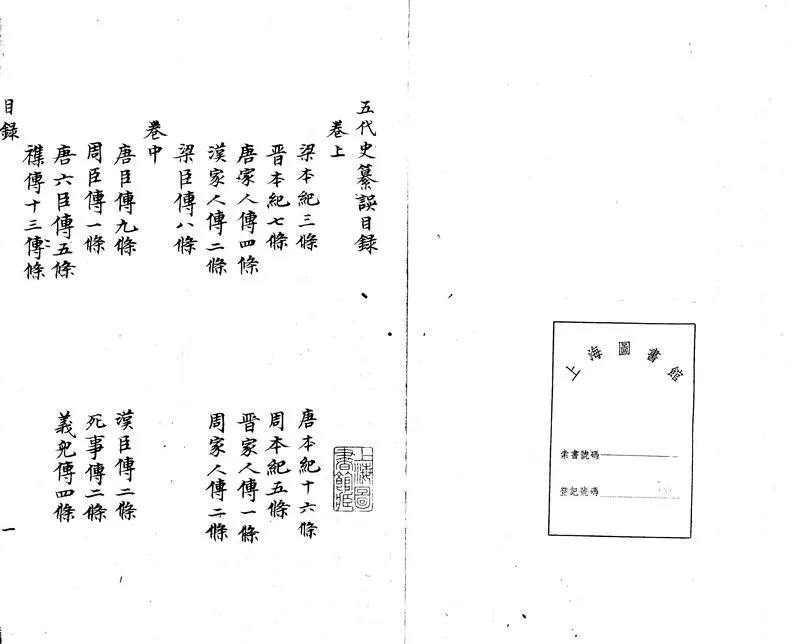 上海圖書館
索書號碼
登記號碼
五代史纂誤目録
上海圖書館藏
卷上
梁本紀三條 唐本紀十六條
晉本紀七條 周本紀五條
唐家人傳四條 晉家人傳一條
漢家人傳二條 周家人傳二條
梁臣傳八條
卷中
唐臣傳九條 漢臣傳二條
周臣傳一條 死事傳二條
唐六臣傳五條 義兒傳四條
襍傳十三傳條
目録 一